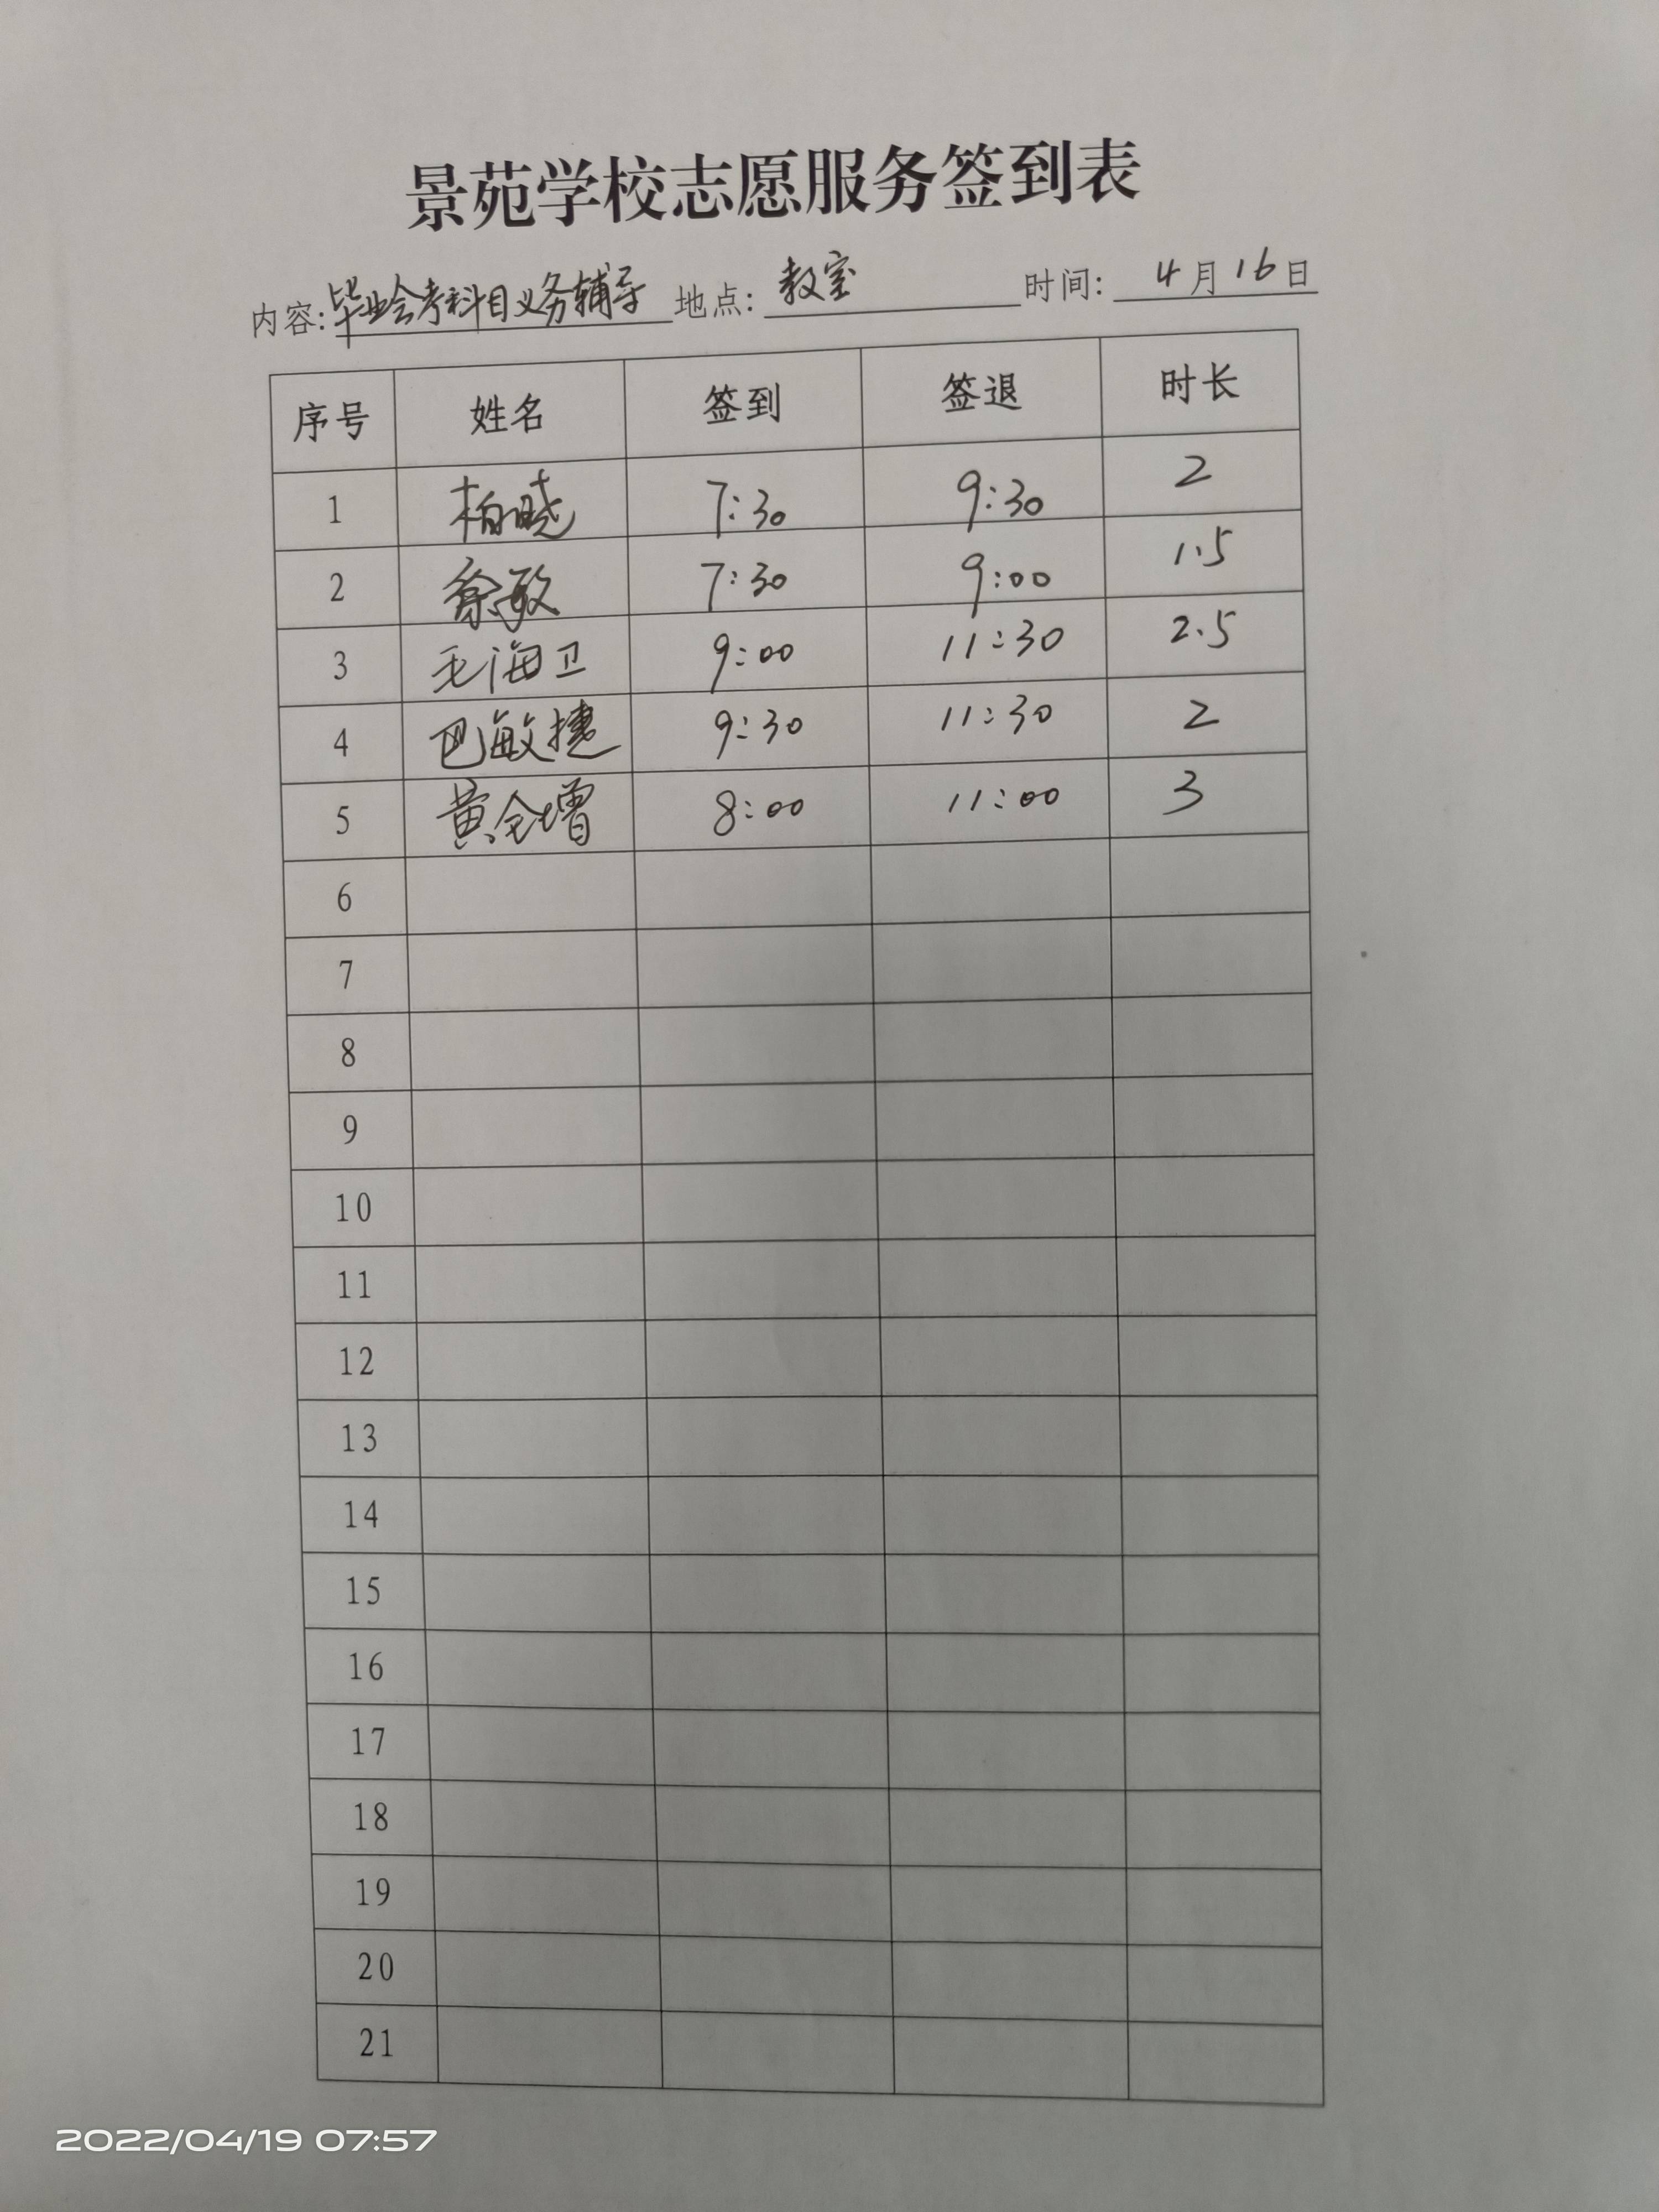 景苑学校志愿服务签到表
内容:毕业会考科目义务辅导 地点:教室 时间:4月16日
序号 姓名 签到 签退 时长
1 柏晓 7:30 9:30 2
2 徐敏 7:30 9:00 1.5
3 毛海卫 9:00 11:30 2.5
4 巴敏捷 9:30 11:30 2
5 黄全增 8:00 11:00 3
6
7
8
9
10
11
12
13
14
15
16
17
18
19
20
21
2022/04/19 07:57